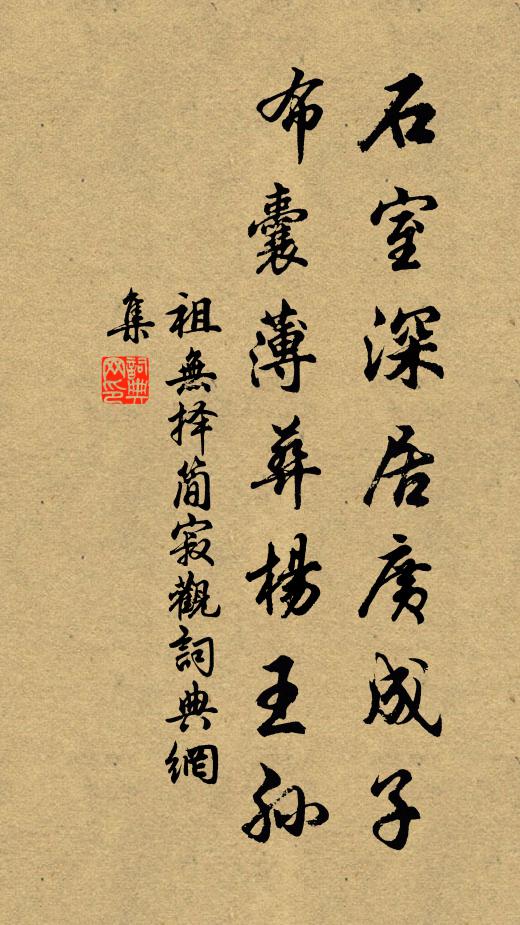 石室深居廣成子
布囊薄葬楊王孙
祖無择简寂觀詞典網
集
詞典
网印